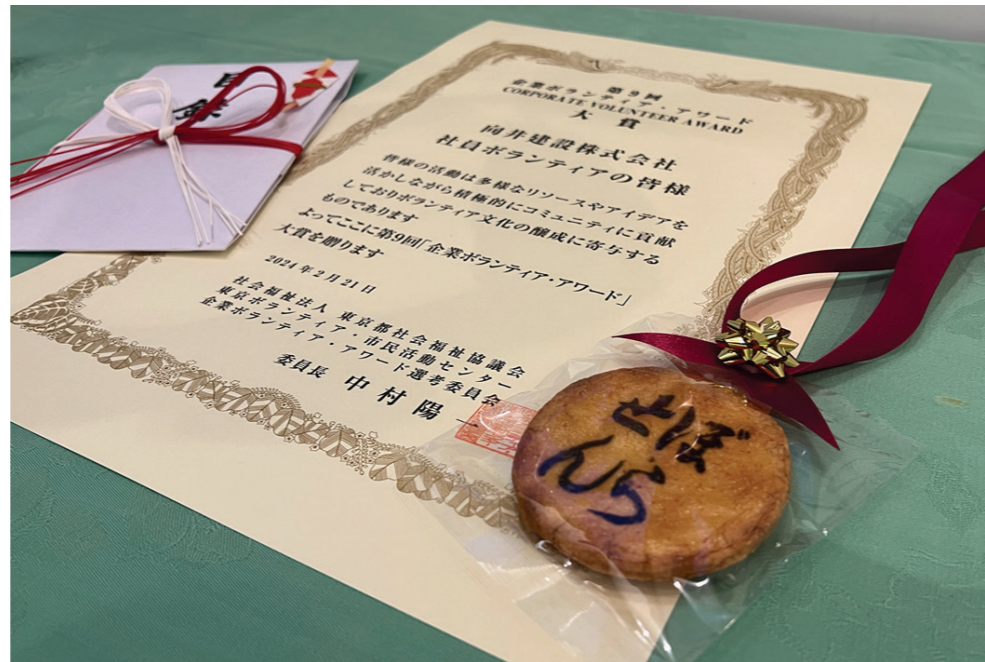 目録
第9回
企業ボランティア・アワード
CORPORATE VOLUNTEER AWARD
大賞
向井建設株式会社
社員ボランティアの皆様
皆様の活動は多様なリソースやアイデアを
活かしながら積極的にコミュニティに貢献
しておりボランティア文化の醸成に寄与する
ものであります
よってここに第9回「企業ボランティア・アワード」
大賞を贈ります
2024年2月21日
社会福祉法人 東京都社会福祉協議会
東京ボランティア・市民活動センター
企業ボランティア・アワード選考委員会
委員長 中村陽一
ぼら
せん